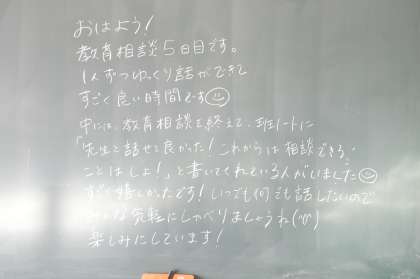 おはよう!
教育相談5日目です。
1人ずつゆっくり話ができて
すごく良い時間です☺
中には、教育相談を終えて、班ノートに
「先生と話せて良かった!これからは相談できる
ことはしよ!」と書いてくれている人がいました☺
すごく嬉しかったです!いつでも何でも話したいので
みんな気軽にしゃべりましょうね(^^)
楽しみにしています!